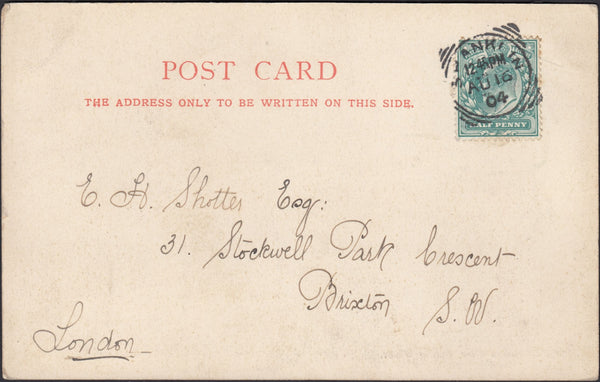 POST CARD
THE ADDRESS ONLY TO BE WRITTEN ON THIS SIDE.
12.45PM
AU 16
04
HALF PENNY
E. H. Shotter Esq:
31. Stockwell Park Crescent
Brixton S.W.
London